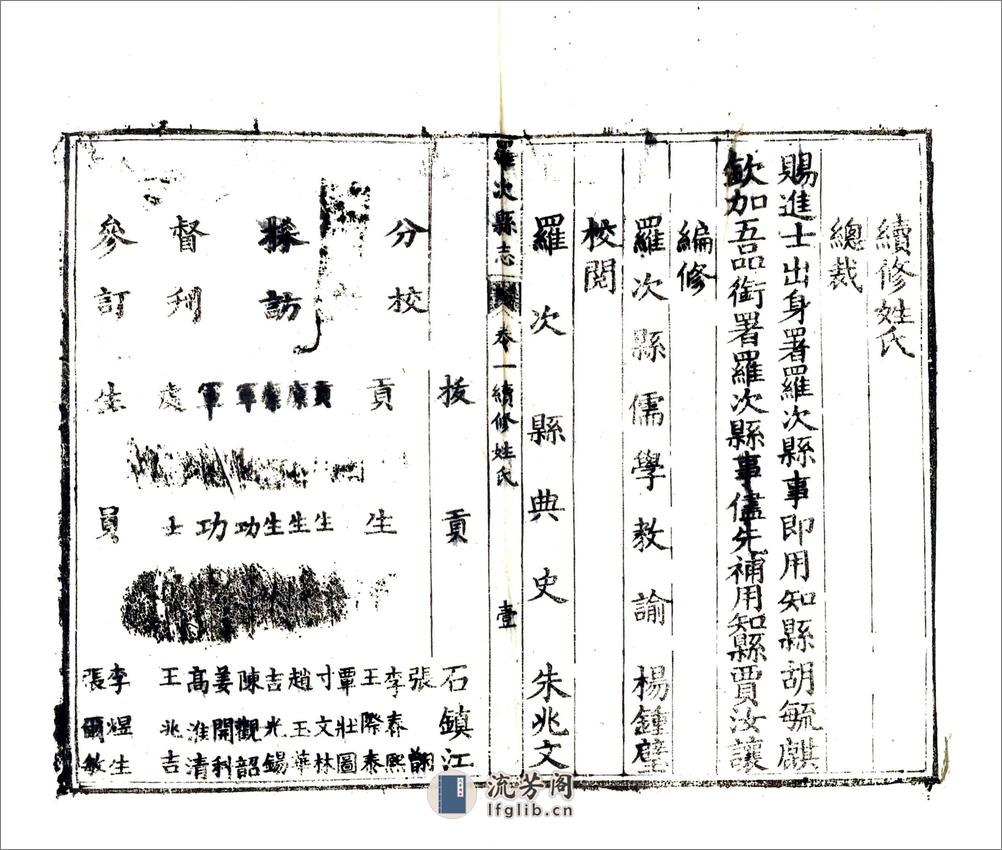 續修姓氏
總裁
賜進士出身署羅次縣事即用知縣胡毓麒
欽加五品銜署羅次縣事儘先補用知縣賈汝讓
編修
羅次縣儒學教諭楊鍾壁
校閱
羅次縣典史朱兆文
羅次縣志 卷一續修姓氏 壹
拔貢石鎮江
分校 貢生
張翺
李泰熙
王際泰
覃壯圖
訪
貢生 寸文林
廩生 趙玉華
廩生 吉光錫
軍功 陳觀韶
軍功 姜開科
高淮清
督刊 處士 王兆吉
參訂 生員
李煜生
張爾敏
流芳阁
lfglib.cn